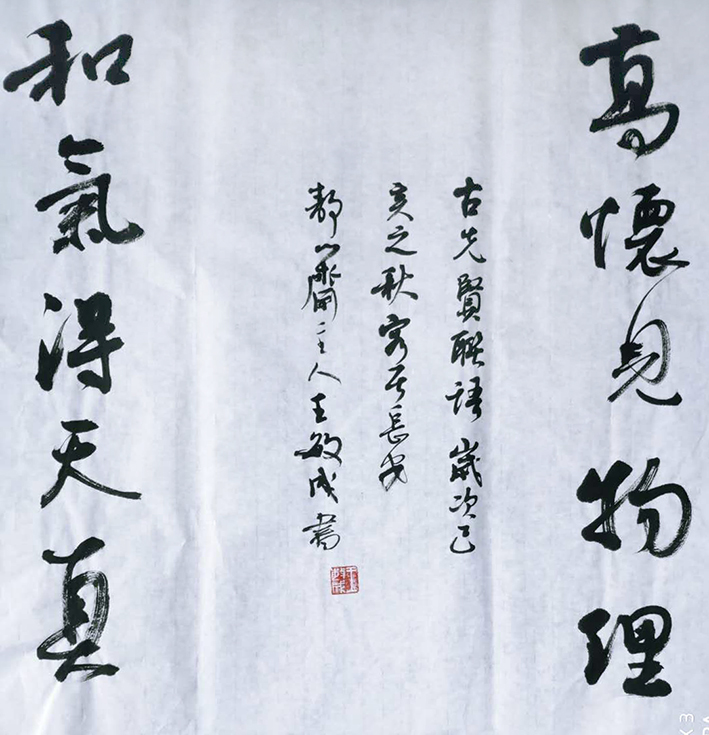 高懷見物理
古先賢聯語歲次己
亥之秋客居長安
静山齋主人王敏成書
和氣得天真